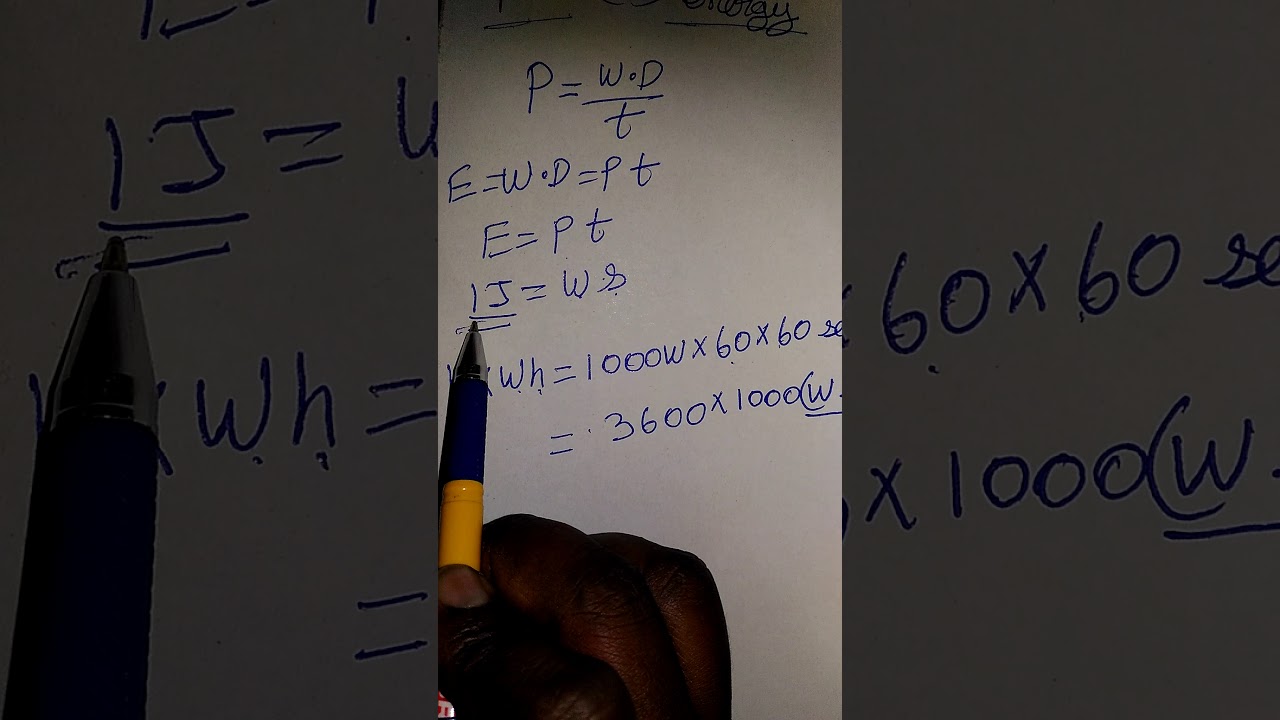 energy
P = W·D / t
E = W·D = P t
E = P t
1J = W s
Wh = 1000W × 60 × 60 se
= 3600 × 1000 (W.